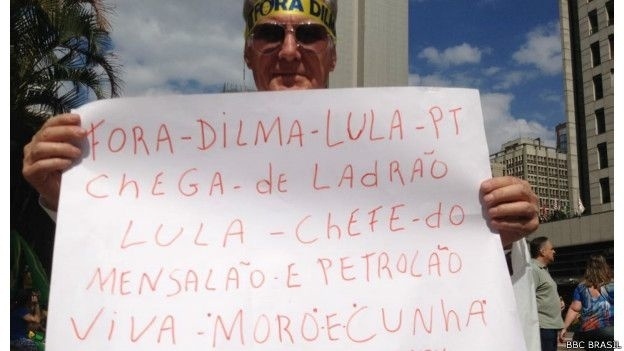 FORA DIL
FORA-DILMA-LULA-PT
CHEGA-de LADRÃO
LULA-CHEFE-do
MENSALÃO.E PETROLÃO
VIVA-MORO.E.CUNHA
BBC BRASIL